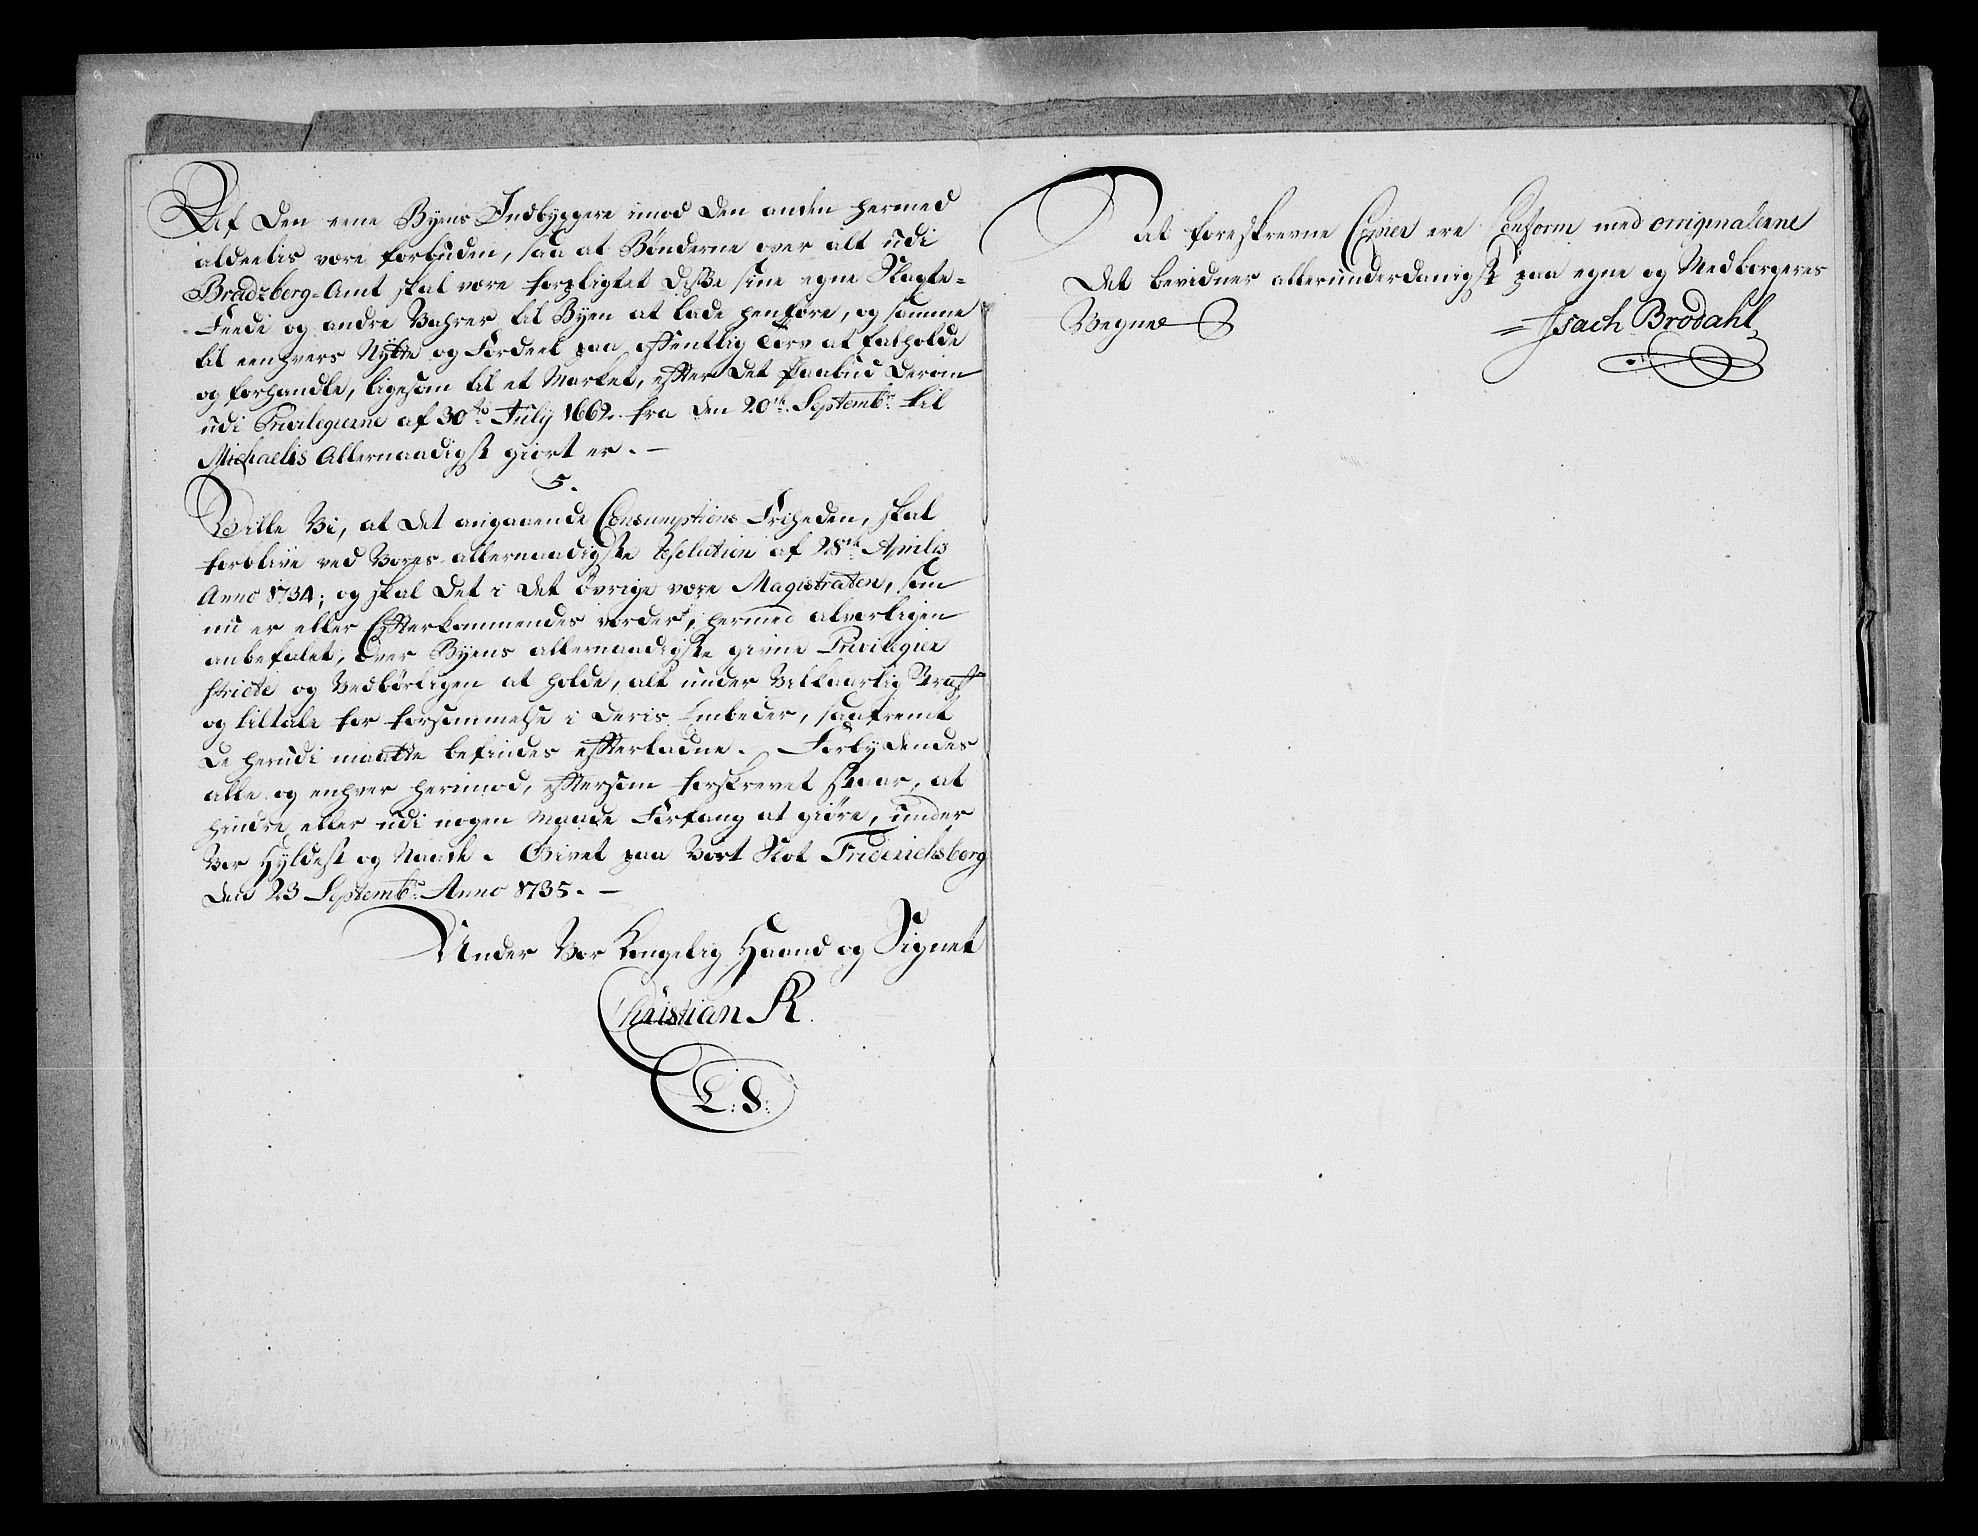 Af den eene Byens Indbyggere imod den anden hermed
aldeelis være forbuden, saa at Bønderne over alt udi
Bradzberg-Amt skal være forpligtet disse sine egne Slagte-
Feede og andre Vahrer til Byen at lade henføre, og samme
til eenhvers Nytte og Fordeel paa offentlig Torv at falholde
og forhandle, ligesom til et Marked, efter det Paabud derom
udi Privilegierne af 30te July 1662. fra den 20de Septembr. til
Michaelis Allernaadigst giort er. —
5.
Ville Vi, at det angaaende Consumptions Friheden, skal
forblive ved Vores allernaadigste Resolution af 28de Aprilis
Anno 1734; og skal det i det øvrige være Magistraten, som
nu er eller Efterkommendes vorder, hermed alvorligen
anbefalet, over Byens allernaadigste givne Privilegier
stricte og Vedbørligen at holde, alt under Vilkaarlig Straff
og tiltale for forsømmelse i deris Embeder, saafremt
de herudi maatte befindes efterladne. Forbydendes
alle og enhver herimod, eftersom forskrevet staar, at
hindre eller udi nogen Maade Forfang at giøre, under
Vor Hyldest og Naade. Givet paa Vort Slot Friderichsberg
den 23 Septembr. Anno 1735. —
Under Vor Kongelig Haand og Signet
Christian R.
L: S:
At foreskrevne Copier ere Conform med originalerne
det bevidner allerunderdanigst paa egne og Medborgeres
Vegne
Isach Brodahl